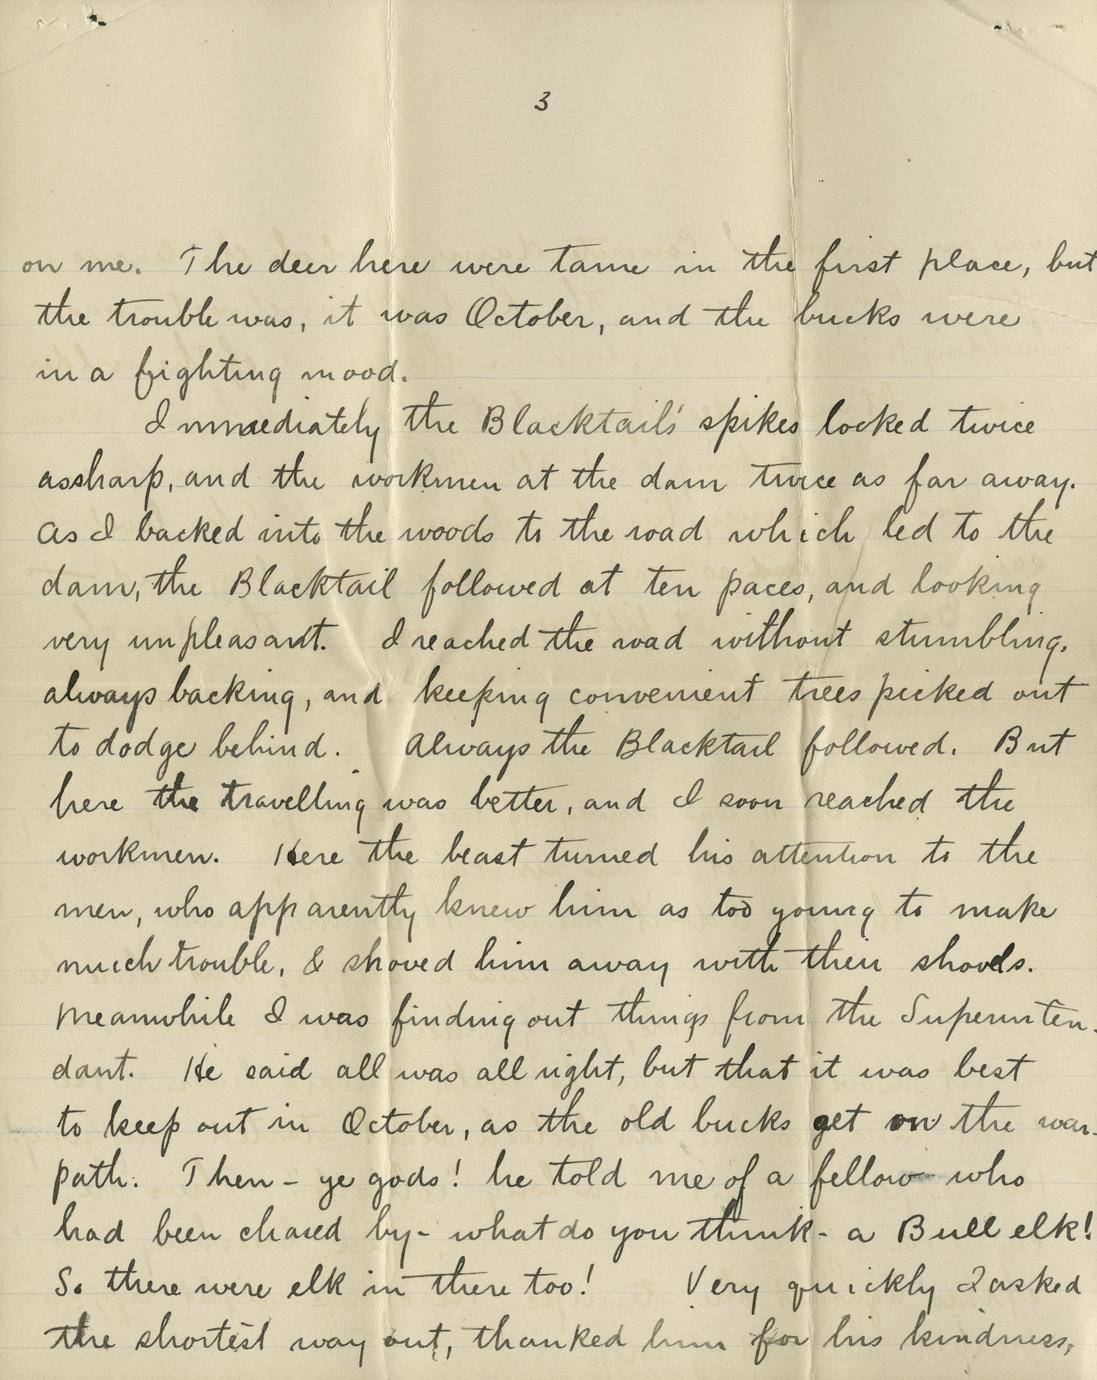 3
on me. The deer here were tame in the first place, but
the trouble was, it was October, and the bucks were
in a fighting mood.
Immediately the Blacktail's spikes looked twice
as sharp, and the workmen at the dam twice as far away.
As I backed into the woods to the road which led to the
dam, the Blacktail followed at ten paces, and looking
very unpleasant. I reached the road without stumbling,
always backing, and keeping convenient trees picked out
to dodge behind. Always the Blacktail followed. But
here the travelling was better, and I soon reached the
workmen. Here the beast turned his attention to the
men, who apparently knew him as too young to make
much trouble, & shoved him away with their shovels.
Meanwhile I was finding out things from the Superinten-
dant. He said all was all right, but that it was best
to keep out in October, as the old bucks get on the war-
path. Then - ye gods! he told me of a fellow who
had been chased by - what do you think - a Bull elk!
So there were elk in there too! Very quickly I asked
the shortest way out, thanked him for his kindness,